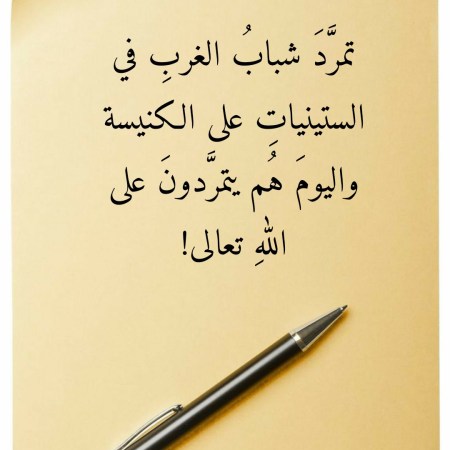 تمرَّدَ شبابُ الغربِ في
الستينياتِ على الكنيسة
واليومَ هُم يتمرَّدونَ على
اللهِ تعالى!